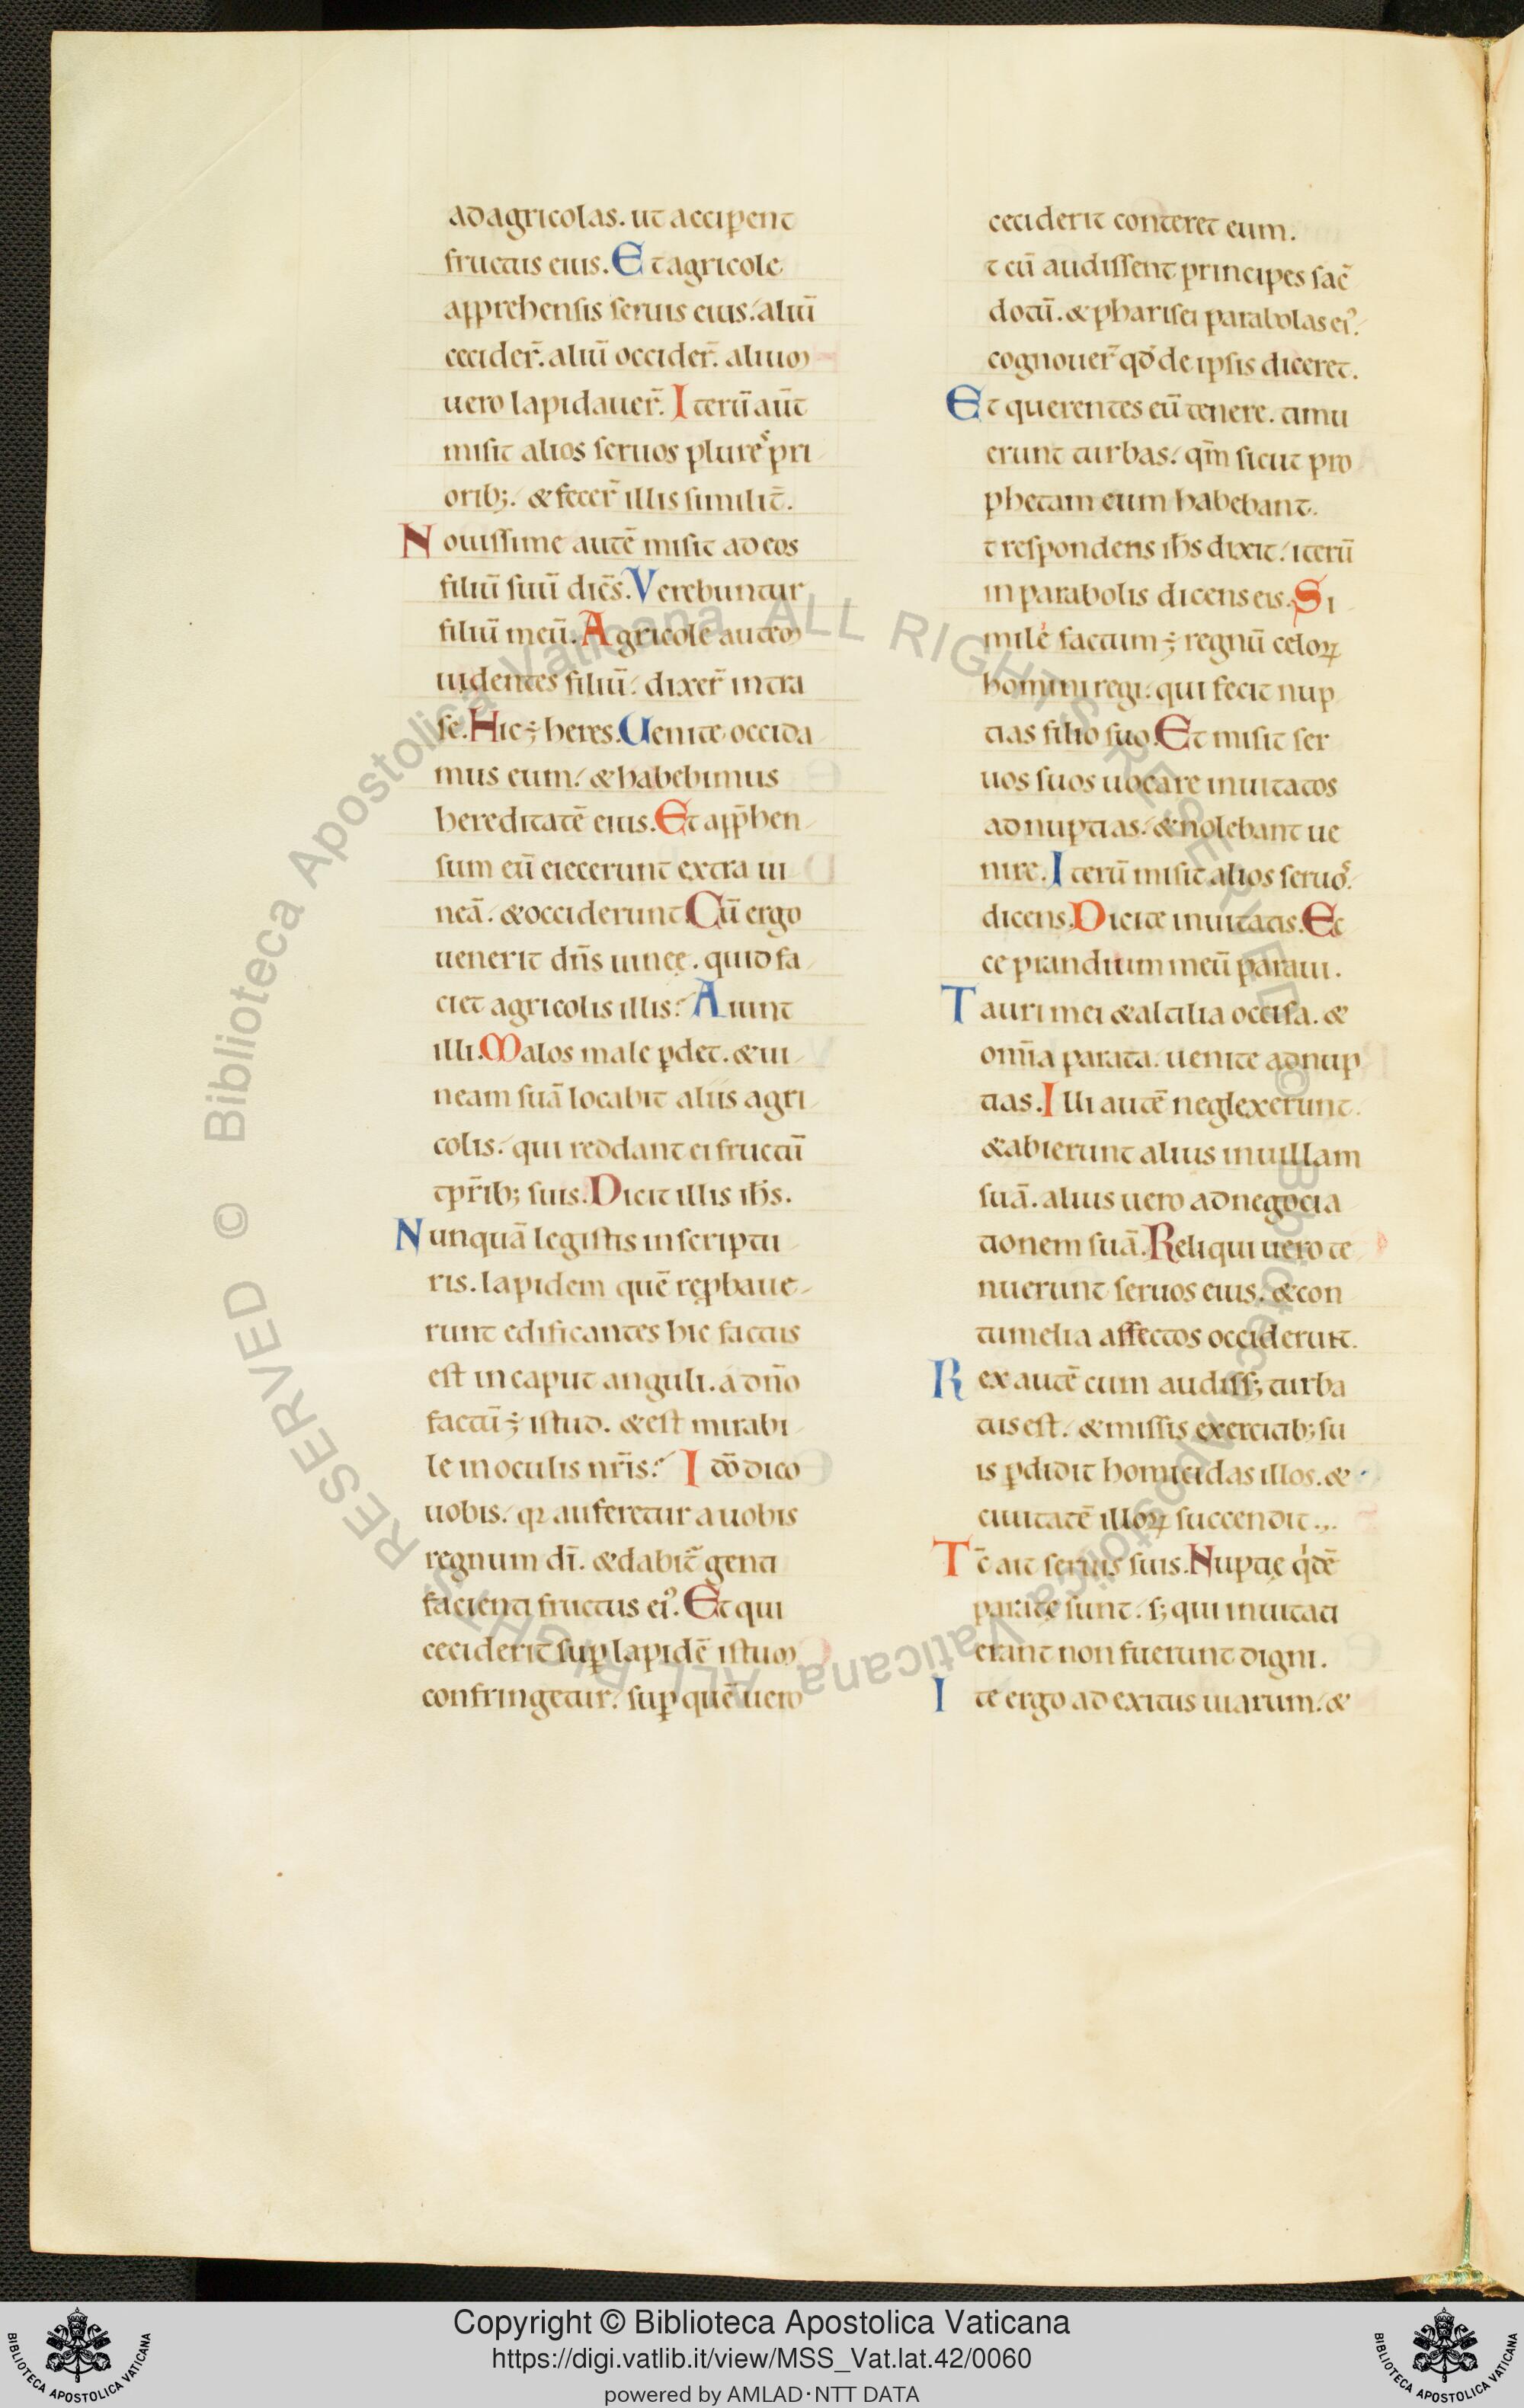 ad agricolas. ut acciꝑent
fructus eius. Et agricole
apprehensis seruis eius. aliū
cecider̄. aliū occider̄. alium
uero lapidauer̄. Iterū aūt
misit alios seruos plures pri
orib;. & fecer̄ illis similit̄.
Nouissime autē misit ad eos
filiū suū dic̄s. Verebuntur
filiū meū. Agricole autem
uidentes filiū. dixer̄ intra
se. Hic ÷ heres. Uenite occida
mus eum. & habebimus
hereditatē eius. Et app̄hen
sum eū eiecerunt extra ui
neā. & occiderunt. Cū ergo
uenerit dn̄s uineę. quid fa
ciet agricolis illis? Aiunt
illi. Malos male ꝑdet. & ui
neam suā locabit aliis agri
colis. qui reddant ei fructū
tp̄rib; suis. Dicit illis ih̄s.
Nunquā legistis in scriptu
ris. lapidem quē reꝓbaue
runt edificantes hic factus
est in caput anguli. a dn̄o
factū ÷ istud. & est mirabi
le in oculis nr̄is? Idō dico
uobis. qꝛ auferetur a uobis
regnum dī. & dabit̄ genti
facienti fructus ei᾽. Et qui
ceciderit suꝑ lapidē istum
confringetur. suꝑ quē uero
ceciderit conteret eum.
t cū audissent principes sac̄
dotū. & pharisei parabolas ei᾽.
cognouer̄ qđ de ipsis diceret.
Et querentes eū tenere. timu
erunt turbas. qm̄ sicut pro
phetam eum habebant.
t respondens ih̄s dixit. iterū
in parabolis dicens eis. Si
mile factum ÷ regnū celoꝝ
homini regi. qui fecit nup
tias filio suo. Et misit ser
uos suos uocare inuitatos
ad nuptias. & nolebant ue
nire. Iterū misit alios seruos.
dicens. Dicite inuitatis. Ec
ce prandium meū paraui.
Tauri mei & altilia occisa. &
omīa parata. uenite ad nup
tias. Illi autē neglexerunt.
& abierunt alius in uillam
suā. alius uero ad negocia
tionem suā. Reliqui uero te
nuerunt seruos eius. & con
tumelia affectos occiderunt.
Rex autē cum audiss; turba
tus est. & missis exercitib; su
is ꝑdidit homicidas illos. &
ciuitatē illoꝝ succendit.
Tc̄ ait seruis suis. Nuptię qͥdē
paratę sunt. s; qui inuitati
erant non fuerunt digni.
Ite ergo ad exitus uiarum. &
Copyright © Biblioteca Apostolica Vaticana
https://digi.vatlib.it/view/MSS_Vat.lat.42/0060
powered by AMLAD·NTT DATA